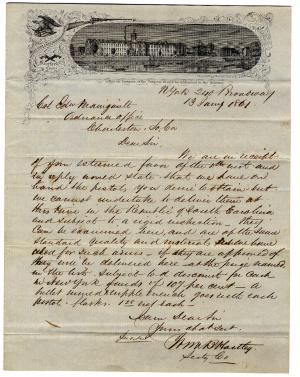 N York 240 Broadway
13 Jany 1861
Col Edw Manigault
Ordnance Office
Charleston So Ca
Dear Sir
We are in receipt
of your esteemed favor of the inst and
in reply would state that we have on
hand the pistols you desire to obtain but
we cannot undertake to deliver them at
this time in the Republic of South Carolina
and subject to a rigid inspection. They
can be examined here, and are of the same
standard quality and material we have
used for such arms. if they are approved of
they will be delivered here at the prices named
in the list. Subject to a discount for cash
in New York funds of 10 per cent — A
bullet mould nipple wrench goes with each
pistol. flasks. 1.00 each.
I am Dear Sir
Yours obdt Servt
Wm Hartley
Secty Co